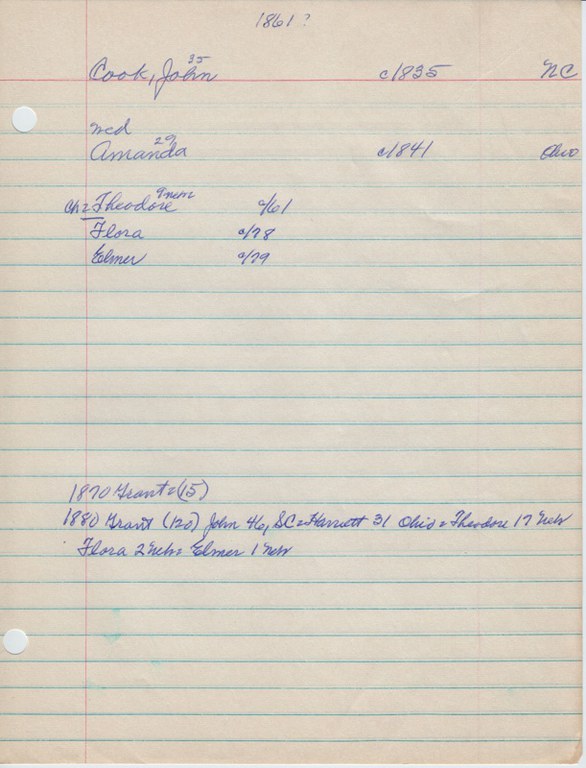 1861?
35
Cook, John c1835 NC
md
29
Amanda c1841 Ohio
9 nem
ch= Theodore c/61
Flora c/78
Elmer c/79
1870 Grant= (15)
1880 Grant (120) John 46, SC= Harriett 31 Ohio= Theodore 17 Neb
Flora 2 Neb= Elmer 1 Neb